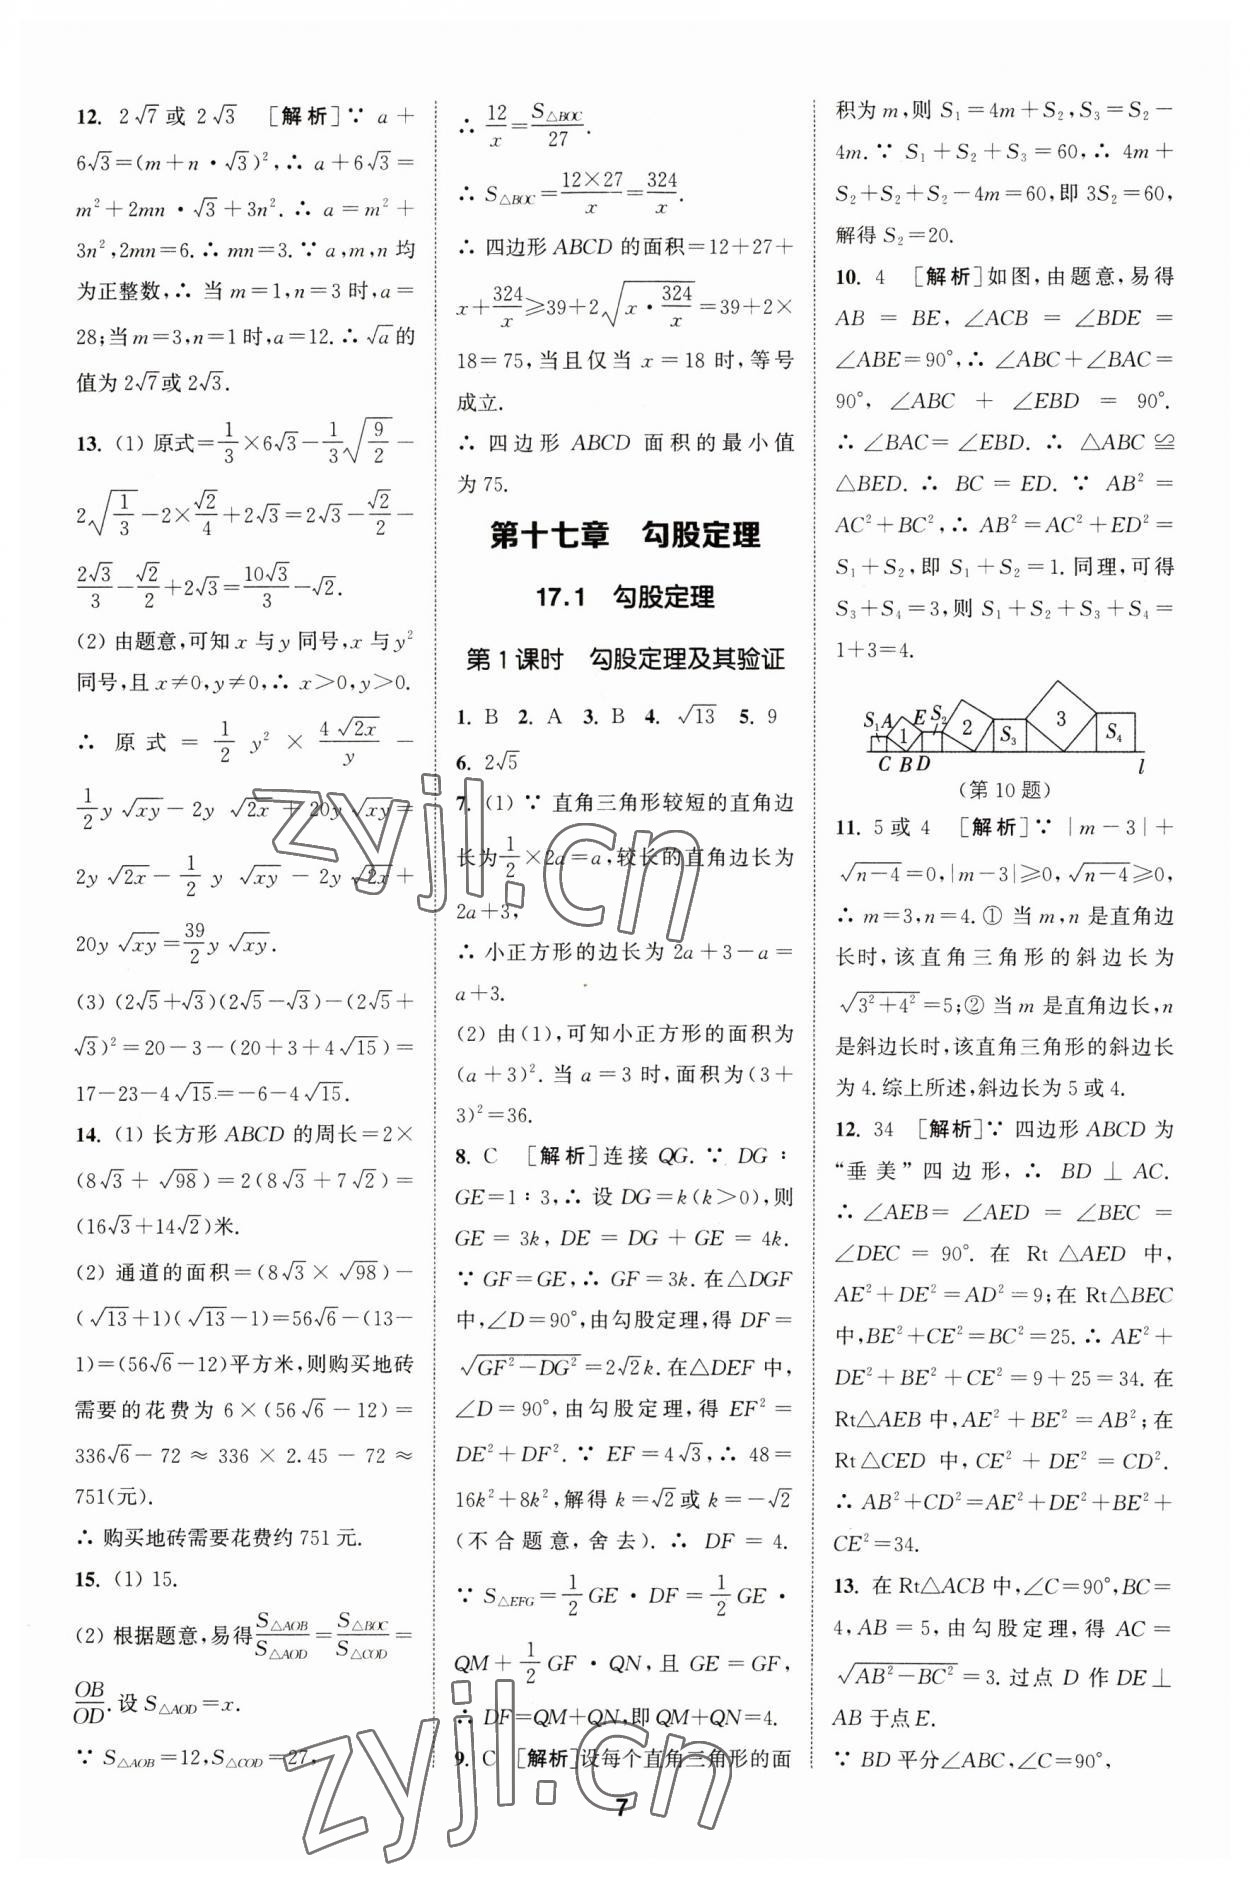 12. 2√7 或 2√3 [解析]∵ a+
6√3=(m+n·√3)²,∴ a+6√3=
m²+2mn·√3+3n².∴ a=m²+
3n²,2mn=6.∴ mn=3.∵ a,m,n 均
为正整数,∴ 当 m=1,n=3 时,a=
28;当 m=3,n=1 时,a=12.∴ √a 的
值为 2√7 或 2√3.
13. (1) 原式=1/3×6√3-1/3√(9/2)-
2√(1/3)-2×√2/4+2√3=2√3-√2/2-
2√3/3-√2/2+2√3=10√3/3-√2.
(2) 由题意,可知 x 与 y 同号,x 与 y²
同号,且 x≠0,y≠0,∴ x>0,y>0.
∴ 原式=1/2 y²×4√(2x)/y-
1/2 y√(xy)-2y√(2x)+20y√(xy)=
2y√(2x)-1/2 y√(xy)-2y√(2x)+
20y√(xy)=39/2 y√(xy).
(3) (2√5+√3)(2√5-√3)-(2√5+
√3)²=20-3-(20+3+4√15)=
17-23-4√15=-6-4√15.
14. (1) 长方形 ABCD 的周长=2×
(8√3+√98)=2(8√3+7√2)=
(16√3+14√2)米.
(2) 通道的面积=(8√3×√98)-
(√13+1)(√13-1)=56√6-(13-
1)=(56√6-12)平方米,则购买地砖
需要的花费为 6×(56√6-12)=
336√6-72≈336×2.45-72≈
751(元).
∴ 购买地砖需要花费约 751 元.
15. (1) 15.
(2) 根据题意,易得S△AOB/S△AOD=S△BOC/S△COD=
OB/OD.设 S△AOD=x.
∵ S△AOB=12,S△COD=27,
∴ 12/x=S△BOC/27.
∴ S△BOC=12×27/x=324/x.
∴ 四边形 ABCD 的面积=12+27+
x+324/x≥39+2√(x·324/x)=39+2×
18=75,当且仅当 x=18 时,等号
成立.
∴ 四边形 ABCD 面积的最小值
为 75.
第十七章 勾股定理
17.1 勾股定理
第 1 课时 勾股定理及其验证
1. B 2. A 3. B 4. √13 5. 9
6. 2√5
7. (1) ∵ 直角三角形较短的直角边
长为1/2×2a=a,较长的直角边长为
2a+3,
∴ 小正方形的边长为 2a+3-a=
a+3.
(2) 由(1),可知小正方形的面积为
(a+3)².当 a=3 时,面积为(3+
3)²=36.
8. C [解析]连接 QG.∵ DG∶
GE=1∶3,∴ 设 DG=k(k>0),则
GE=3k,DE=DG+GE=4k.
∵ GF=GE,∴ GF=3k.在△DGF
中,∠D=90°,由勾股定理,得 DF=
√(GF²-DG²)=2√2k.在△DEF 中,
∠D=90°,由勾股定理,得 EF²=
DE²+DF².∵ EF=4√3,∴ 48=
16k²+8k²,解得 k=√2或 k=-√2
(不合题意,舍去).∴ DF=4.
∵ S△EFG=1/2 GE·DF=1/2 GE·
QM+1/2 GF·QN,且 GE=GF,
∴ DF=QM+QN,即 QM+QN=4.
9. C [解析]设每个直角三角形的面
积为 m,则 S₁=4m+S₂,S₃=S₂-
4m.∵ S₁+S₂+S₃=60,∴ 4m+
S₂+S₂+S₂-4m=60,即 3S₂=60,
解得 S₂=20.
10. 4 [解析]如图,由题意,易得
AB=BE,∠ACB=∠BDE=
∠ABE=90°,∴ ∠ABC+∠BAC=
90°,∠ABC+∠EBD=90°.
∴ ∠BAC=∠EBD.∴ △ABC≌
△BED.∴ BC=ED.∵ AB²=
AC²+BC²,∴ AB²=AC²+ED²=
S₁+S₂,即 S₁+S₂=1.同理,可得
S₃+S₄=3,则 S₁+S₂+S₃+S₄=
1+3=4.
S₁ A 1 E S₂ 2 S₃ 3 S₄
C B D l
(第 10 题)
11. 5 或 4 [解析]∵ |m-3|+
√(n-4)=0,|m-3|≥0,√(n-4)≥0,
∴ m=3,n=4.① 当 m,n 是直角边
长时,该直角三角形的斜边长为
√(3²+4²)=5;② 当 m 是直角边长,n
是斜边长时,该直角三角形的斜边长
为 4.综上所述,斜边长为 5 或 4.
12. 34 [解析]∵ 四边形 ABCD 为
“垂美”四边形,∴ BD⊥AC.
∴ ∠AEB=∠AED=∠BEC=
∠DEC=90°.在 Rt△AED 中,
AE²+DE²=AD²=9;在 Rt△BEC
中,BE²+CE²=BC²=25.∴ AE²+
DE²+BE²+CE²=9+25=34.在
Rt△AEB 中,AE²+BE²=AB²;在
Rt△CED 中,CE²+DE²=CD².
∴ AB²+CD²=AE²+DE²+BE²+
CE²=34.
13. 在 Rt△ACB 中,∠C=90°,BC=
4,AB=5,由勾股定理,得 AC=
√(AB²-BC²)=3.过点 D 作 DE⊥
AB 于点 E.
∵ BD 平分∠ABC,∠C=90°,
7
zyjl.cn
zyjl.cn